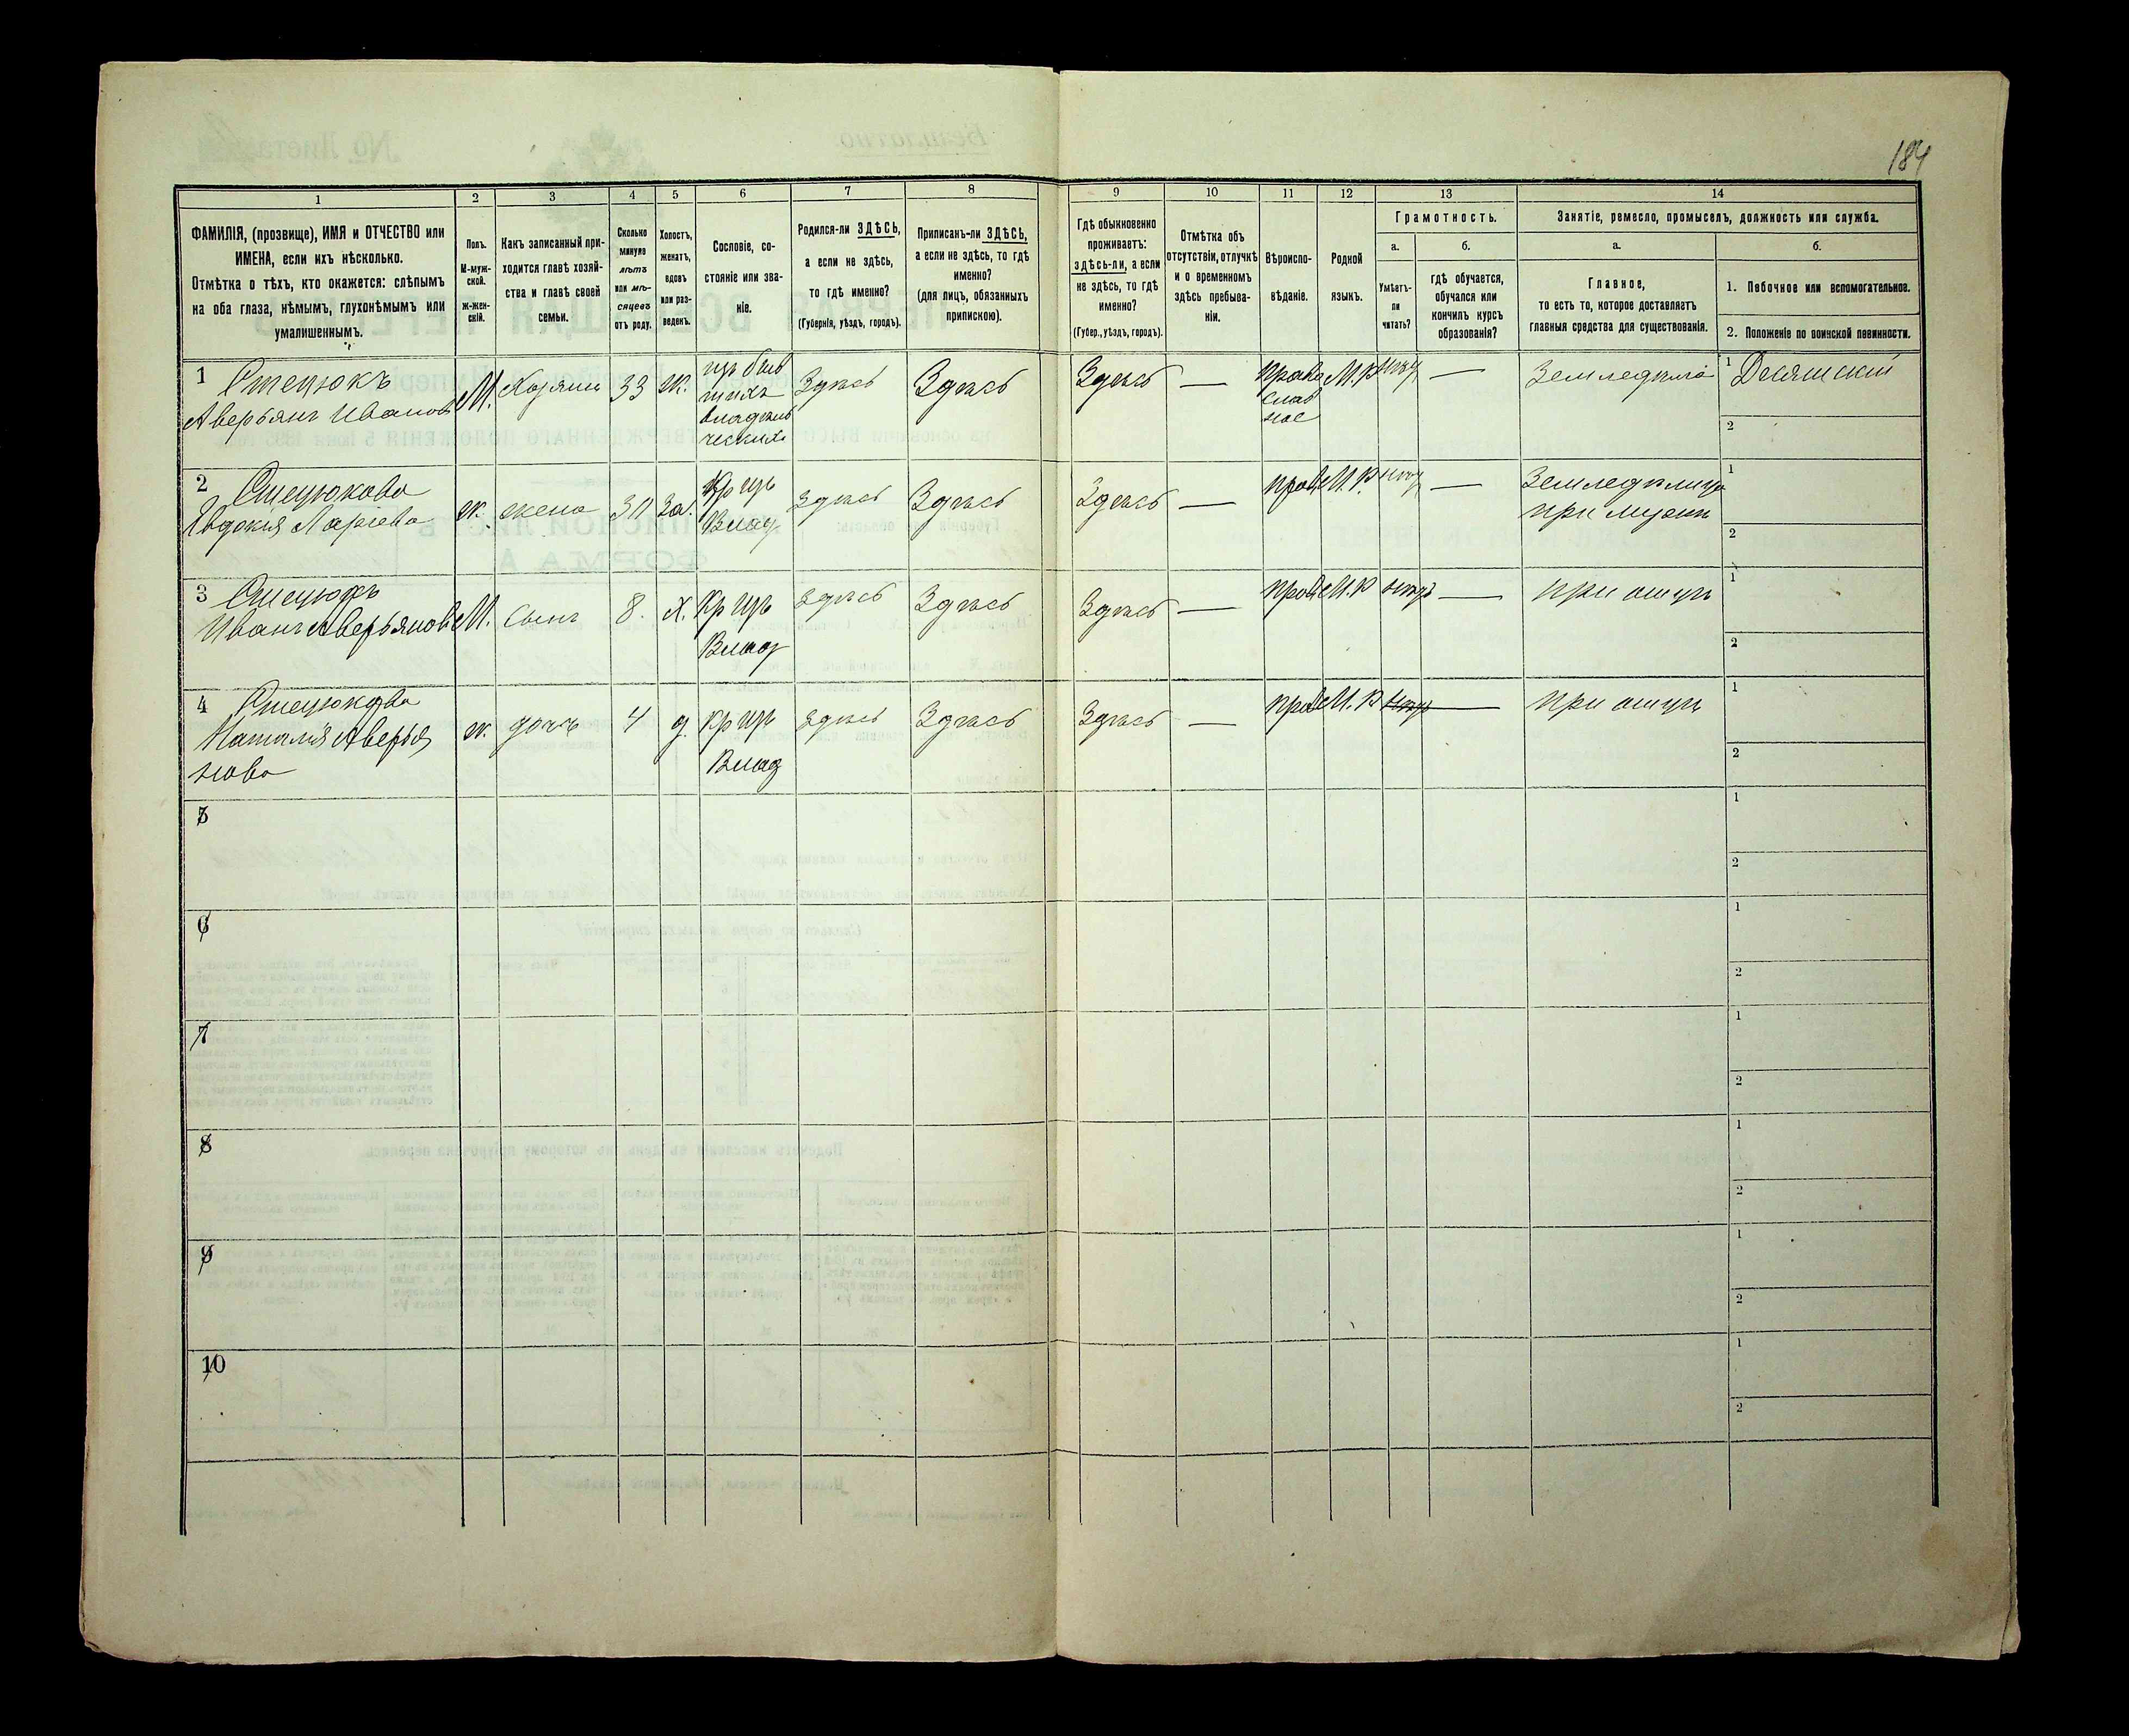 184
1
2
3
4
5
6
7
8
9
10
11
12
13
14
ФАМИЛІЯ, (прозвище), ИМЯ и ОТЧЕСТВО или
ИМЕНА, если ихъ нѣсколько.
Отмѣтка о тѣхъ, кто окажется: слѣпымъ
на оба глаза, нѣмымъ, глухонѣмымъ или
умалишеннымъ.
Полъ.
М-муж-
ской.
Ж-жен-
скій.
Какъ записанный при-
ходится главѣ хозяй-
ства и главѣ своей
семьи.
Сколько
минуло
лѣтъ
или мѣ-
сяцевъ
отъ роду.
Холостъ,
женатъ,
вдовъ
или раз-
веденъ.
Сословіе, со-
стояніе или зва-
ніе.
Родился-ли ЗДѢСЬ,
а если не здѣсь,
то гдѣ именно?
(Губернія, уѣздъ, городъ).
Приписанъ-ли ЗДѢСЬ,
а если не здѣсь, то гдѣ
именно?
(для лицъ, обязанныхъ
припискою).
Гдѣ обыкновенно
проживаетъ:
здѣсь-ли, а если
не здѣсь, то гдѣ
именно?
(Губер., уѣздъ, городъ).
Отмѣтка объ
отсутствіи, отлучкѣ
и о временномъ
здѣсь пребыва-
ніи.
Вѣроиспо-
вѣданіе.
Родной
языкъ.
Грамотность.
а.
Умѣетъ-
ли
читать?
б.
гдѣ обучается,
обучался или
кончилъ курсъ
образованія?
Занятіе, ремесло, промыселъ, должность или служба.
а.
Главное,
то есть то, которое доставляетъ
главныя средства для существованія.
б.
1. Побочное или вспомогательное.
2. Положеніе по воинской повинности.
1 Стецюкъ
Аверьянъ Ивановъ
М.
Хозяинъ
33
ж.
изъ быв
шихъ
владѣль
ческихъ
Здѣсь
Здѣсь
Здѣсь
—
Право
слав
ное
М.Р.
—
1
2
2 Стецюкова
Евдокія
ж.
жена
30
За.
Кр изъ
Влад.
Здѣсь
Здѣсь
Здѣсь
—
прав
М.Р.
—
Земледѣлица
при мужѣ
1
2
3 Стецюкъ
Иванъ Аверьяновъ
М.
Сынъ
8.
Х.
Кр изъ
Влад
Здѣсь
Здѣсь
Здѣсь
—
прав
М.Р
нѣтъ
—
при отцѣ
1
2
4 Стецюкова
Наталія Аверья
нова
ж.
дочь
4
д.
Кр изъ
Влад
Здѣсь
Здѣсь
Здѣсь
—
прав
М.Р
нѣтъ
—
при отцѣ
1
2
5
1
2
6
1
2
7
1
2
8
1
2
9
1
2
10
1
2